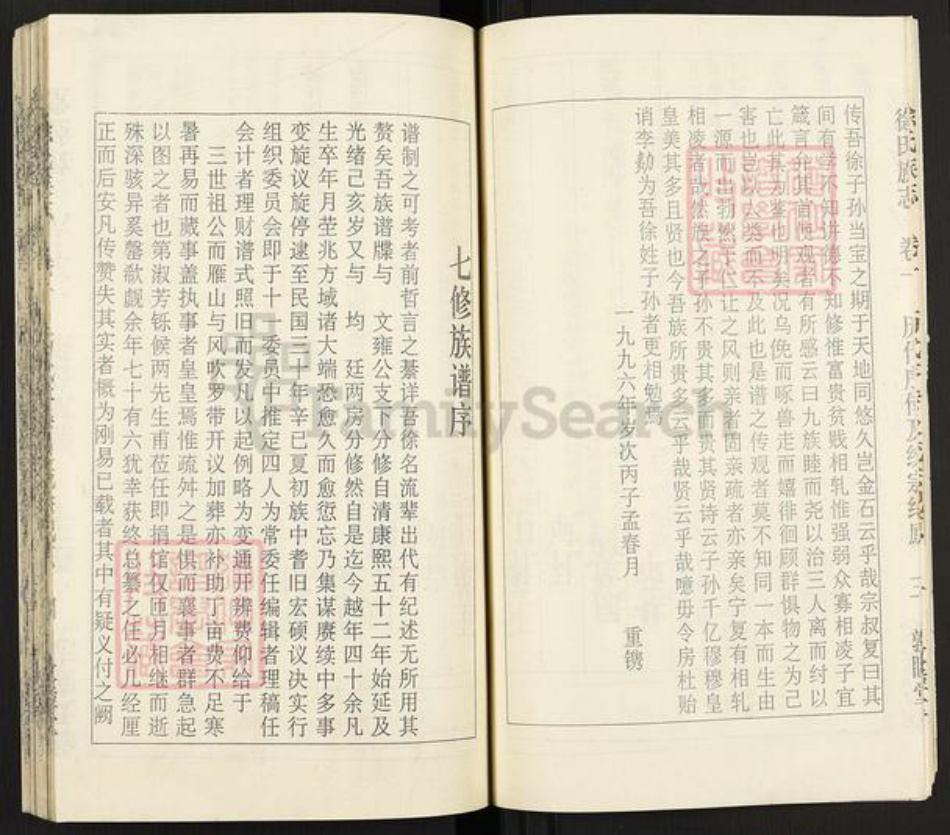 徐氏族志 卷一
传吾徐子孙当宝之期于天地同悠久岂金石云乎哉宗叔复曰其
间有学不知讲德不知修惟富贵贫贱相轧惟强弱众寡相凌子宜
箴言弁其首使观者有所感云曰九族睦而尧以治三人离而纣以
亡此其为鉴也明矣况乌俛而啄兽走而嬉徘徊顾群俱物之为己
害也岂以人类而不及此也是谱之传观者莫不知同一本而生由
一源而出勃然于仁让之风则亲者固亲疏者亦亲矣宁复有相轧
相凌者哉然族之子孙不贵其多而贵其贤诗云子孙千亿穆穆皇
皇美其多且贤也今吾族所贵多云乎哉贤云乎哉噫毋令房杜贻
诮李勣为吾徐姓子孙者更相勉焉
一九九六年岁次丙子孟春月 重镌
七修族谱序
谱制之可考者前哲言之綦详吾徐名流辈出代有纪述无所用其
赘矣吾族谱牒与 文雍公支下分修自清康熙五十二年始延及
光绪己亥岁又与 均 廷两房分修然自是迄今越年四十余凡
生卒年月茔兆方域诸大端恐愈久而愈愆忘乃集谋赓续中多事
变旋议旋停逮至民国三十年辛巳夏初族中耆旧宏硕议决实行
组织委员会即于十一委员中推定四人为常委任编辑者理稿任
会计者理财谱式照旧而发凡以起例略为变通开办费仰给于
三世祖公而雁山与风吹罗带开议加葬亦补助丁亩费不足寒
暑再易而蒇事盖执事者皇皇焉惟疏舛之是惧而襄事者群急起
以图之者也第淑芳铄候两先生甫莅任即捐馆仅匝月相继而逝
殊深骇异奚罄欷觑余年七十有六犹幸获终总纂之任必几经厘
正而后安凡传赞失其实者概为刚易已载者其中有疑义付之阙
FamilySearch